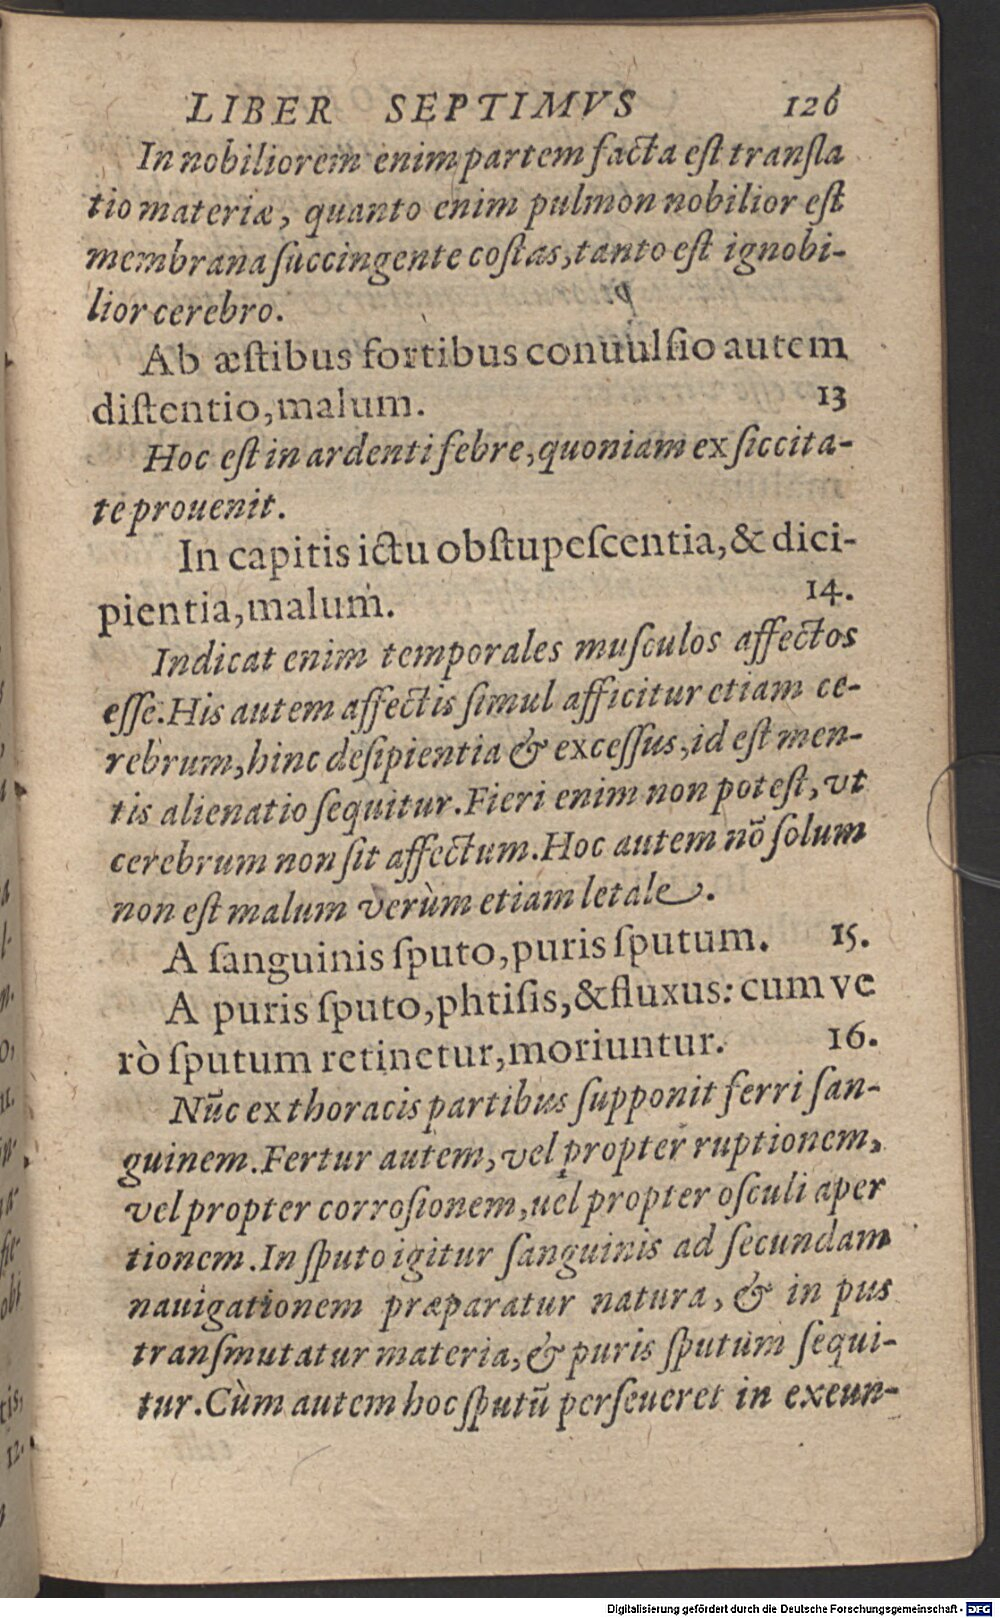 LIBER SEPTIMVS 126
In nobiliorem enim partem facta est transla
tio materiæ, quanto enim pulmon nobilior est
membrana succingente costas, tanto est ignobi-
lior cerebro.
Ab æstibus fortibus conuulsio autem
distentio, malum. 13
Hoc est in ardenti febre, quoniam ex siccita-
te prouenit.
In capitis ictu obstupescentia, & dici-
pientia, malum. 14.
Indicat enim temporales musculos affectos
esse. His autem affectis simul afficitur etiam ce-
rebrum, hinc desipientia & excessus, id est men-
tis alienatio sequitur. Fieri enim non potest, vt
cerebrum non sit affectum. Hoc autem nō solum
non est malum verùm etiam letale.
A sanguinis sputo, puris sputum. 15.
A puris sputo, phtisis, & fluxus: cum ve
rò sputum retinetur, moriuntur. 16.
Nūc ex thoracis partibus supponit ferri san-
guinem. Fertur autem, vel propter ruptionem,
vel propter corrosionem, uel propter osculi aper
tionem. In sputo igitur sanguinis ad secundam
nauigationem præparatur natura, & in pus
transmutatur materia, & puris sputum sequi-
tur. Cùm autem hoc sputū perseueret in exeun-
Digitalisierung gefördert durch die Deutsche Forschungsgemeinschaft - DFG